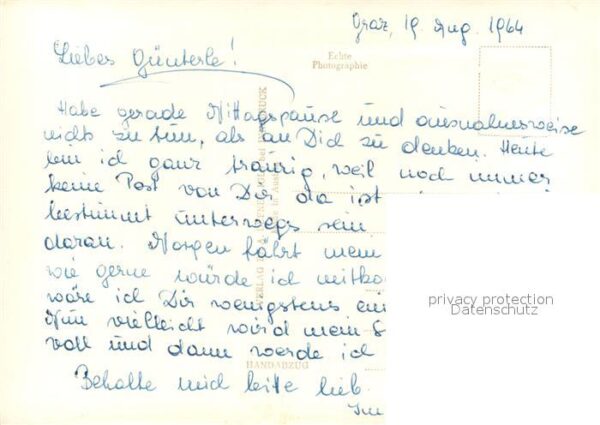 Graz, 19. Aug. 1964
Liebes Günterle!
Echte
Photographie
Habe gerade Mittagspause und ausnahmsweise
nichts zu tun, als an Dich zu denken. Heute
bin ich ganz traurig, weil noch immer
keine Post von Dir da ist
bestimmt unterwegs sein
daran. Morgen fährt mein
wie gerne würde ich mitko
wäre ich Dir wenigstens ei
Nun vielleicht wird mein S
voll und dann werde ich
HANDABZUG
Behalte mich bitte lieb.
privacy protection
Datenschutz